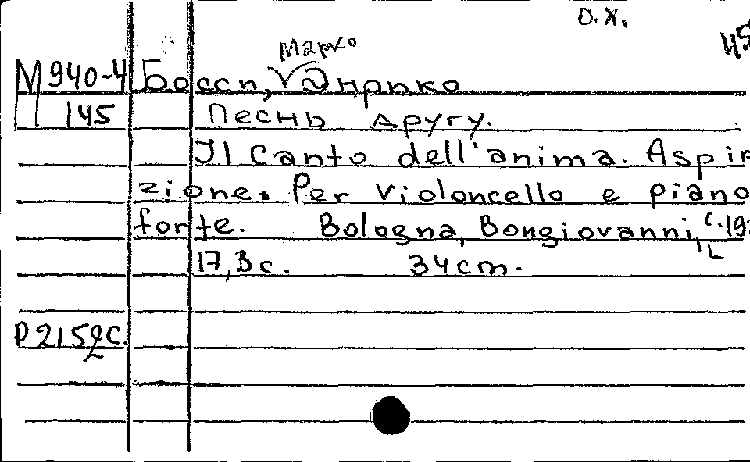 О.Х.
Марко
М940-4 Босси, Энрико
145 Песнь другу.
Il Canto dell'anima. Aspir
zione. Per violoncello e piano
forte. Bologna, Bongiovanni,
17,3 с. 34 cm.